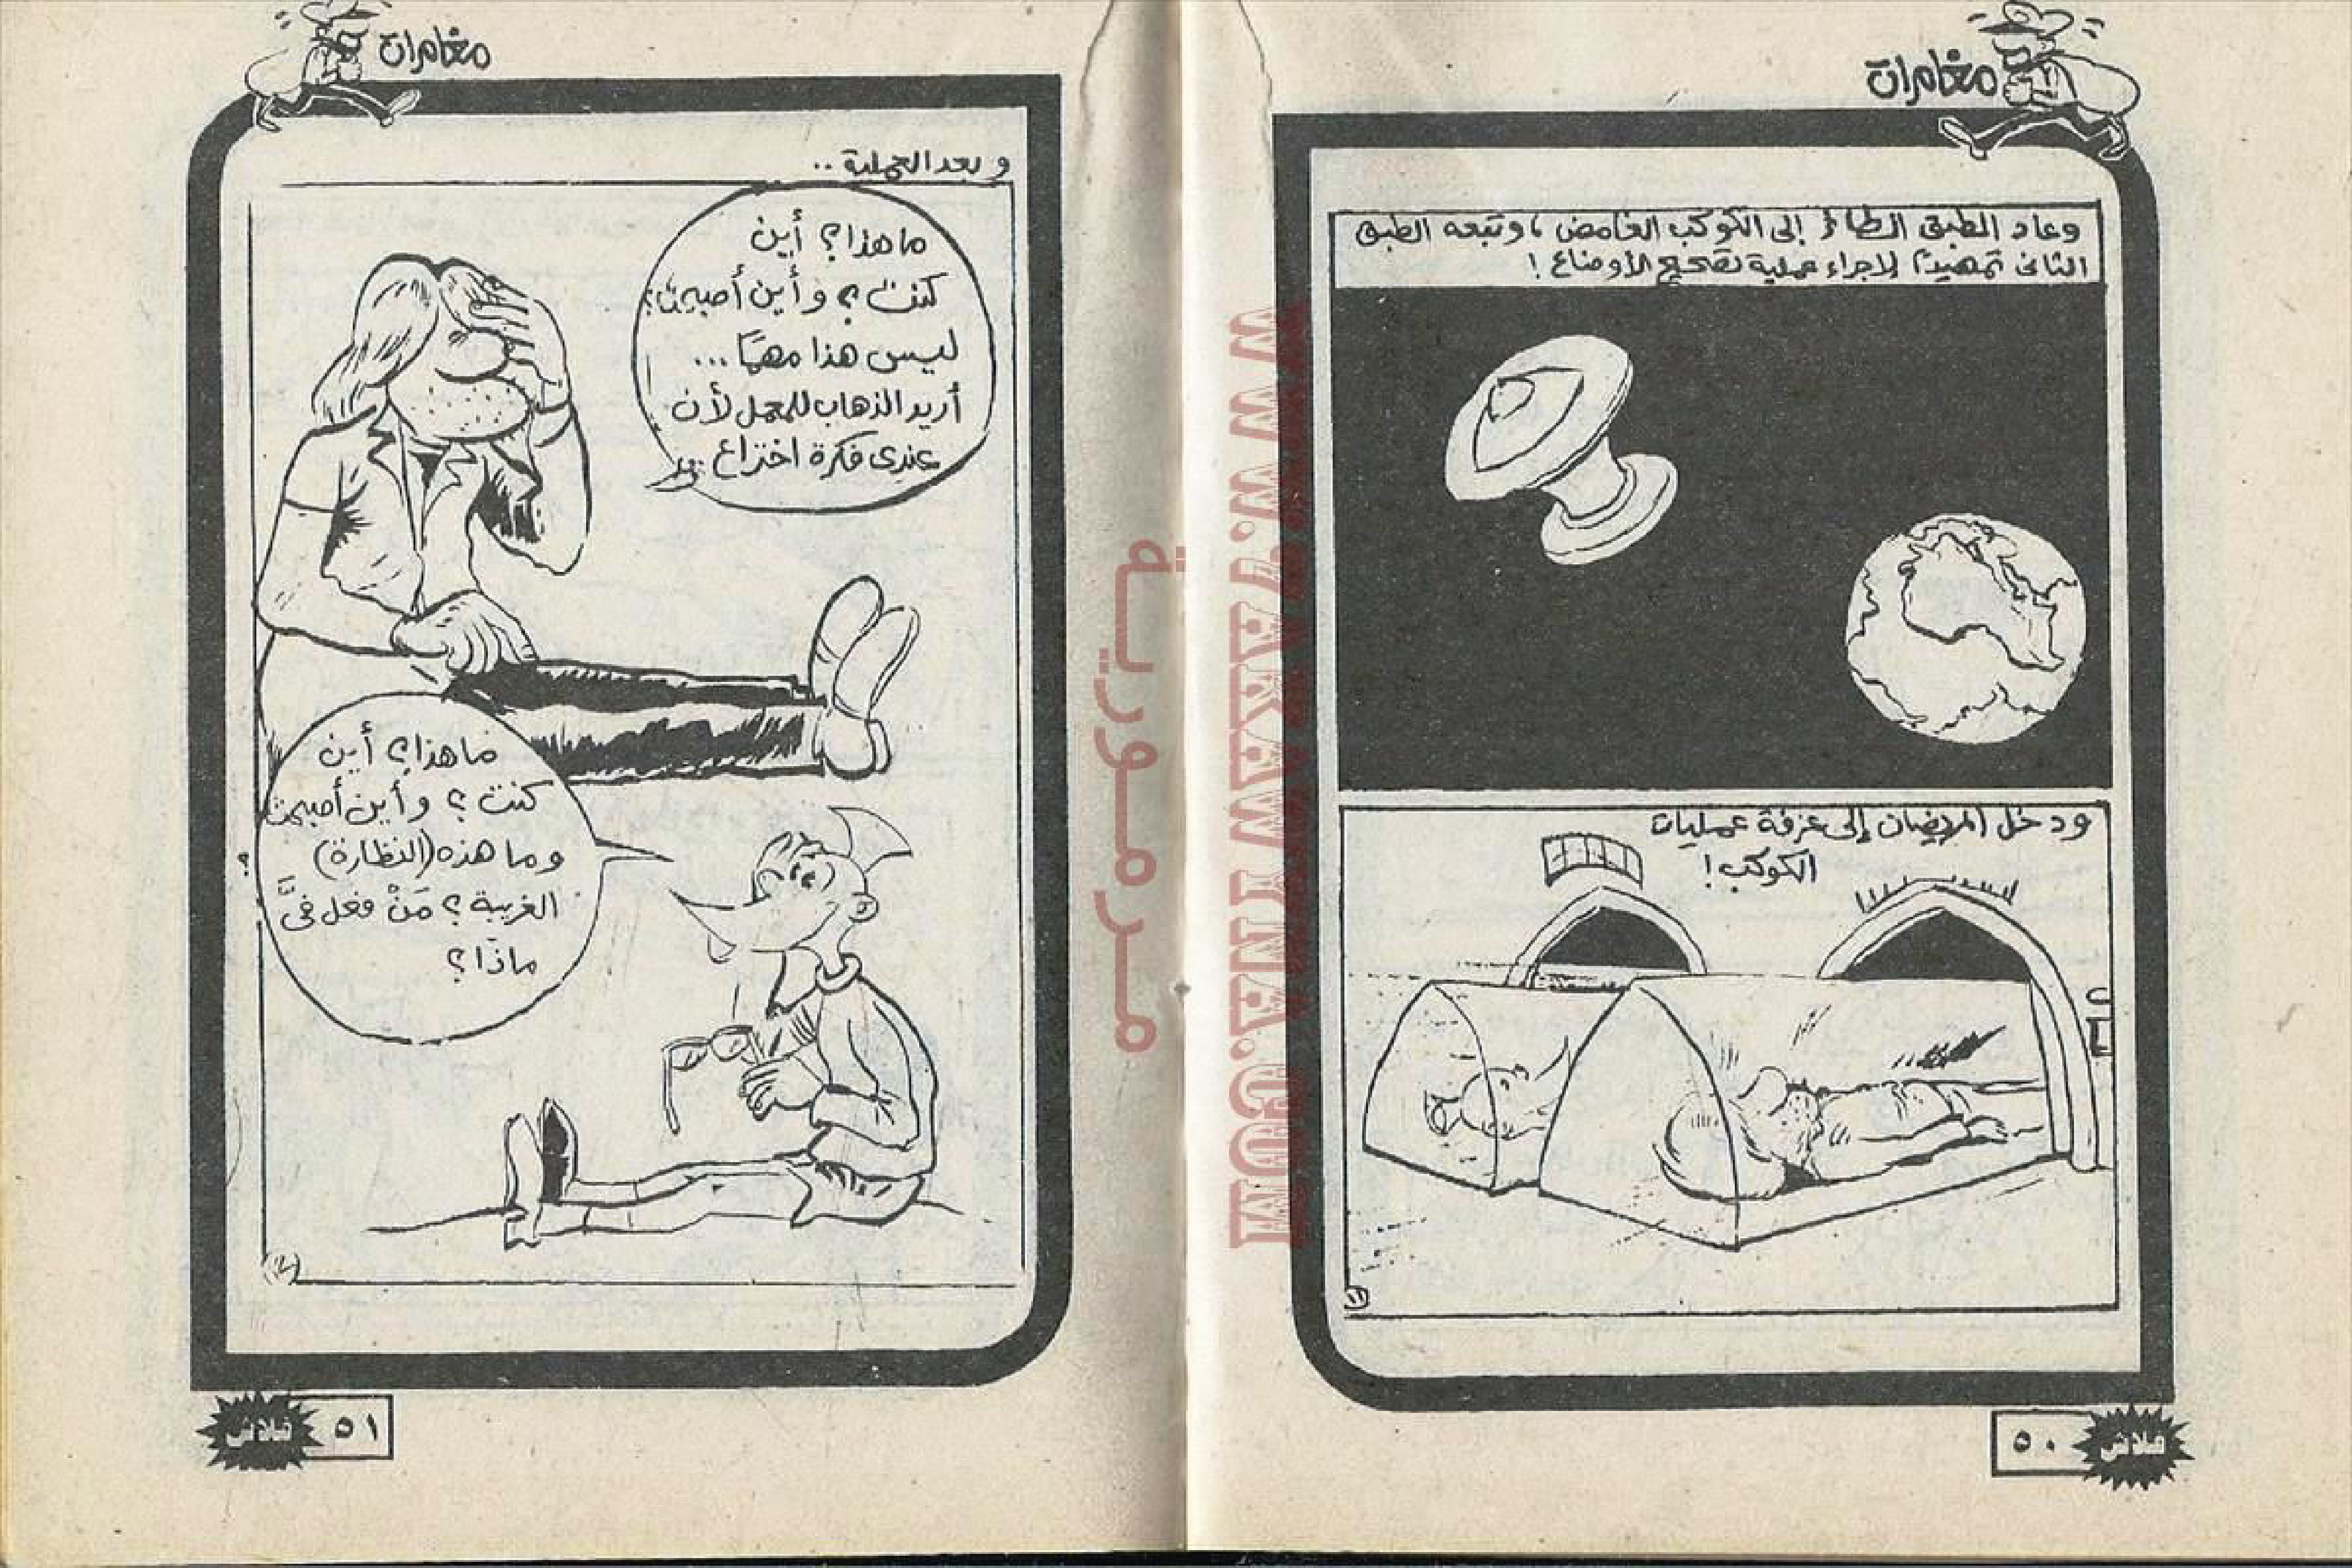 مغامرات
وعاد الطبق الطائر إلى الكوكب الغامض ، وتبعه الطبق
الثانى تمهيدًا لإجراء عملية تصحيح الأوضاع !
ودخل المريضان إلى غرفة عمليات
الكوكب !
١١
٥٠
فلاش
مغامرات
وبعد العملية ..
ما هذا ؟ أين
كنت ؟ وأين أصبحت ؟
ليس هذا مهمًا ...
أريد الذهاب للمعمل لأن
عندى فكرة اختراع ..
ما هذا ؟ أين
كنت ؟ وأين أصبحت ؟
وما هذه (النظارة)
الغريبة ؟ مَنْ فعل فىَّ
ماذا ؟
(١٢)
٥١
فلاش
مرمورية
WWW.ARABWWMANGA.COM